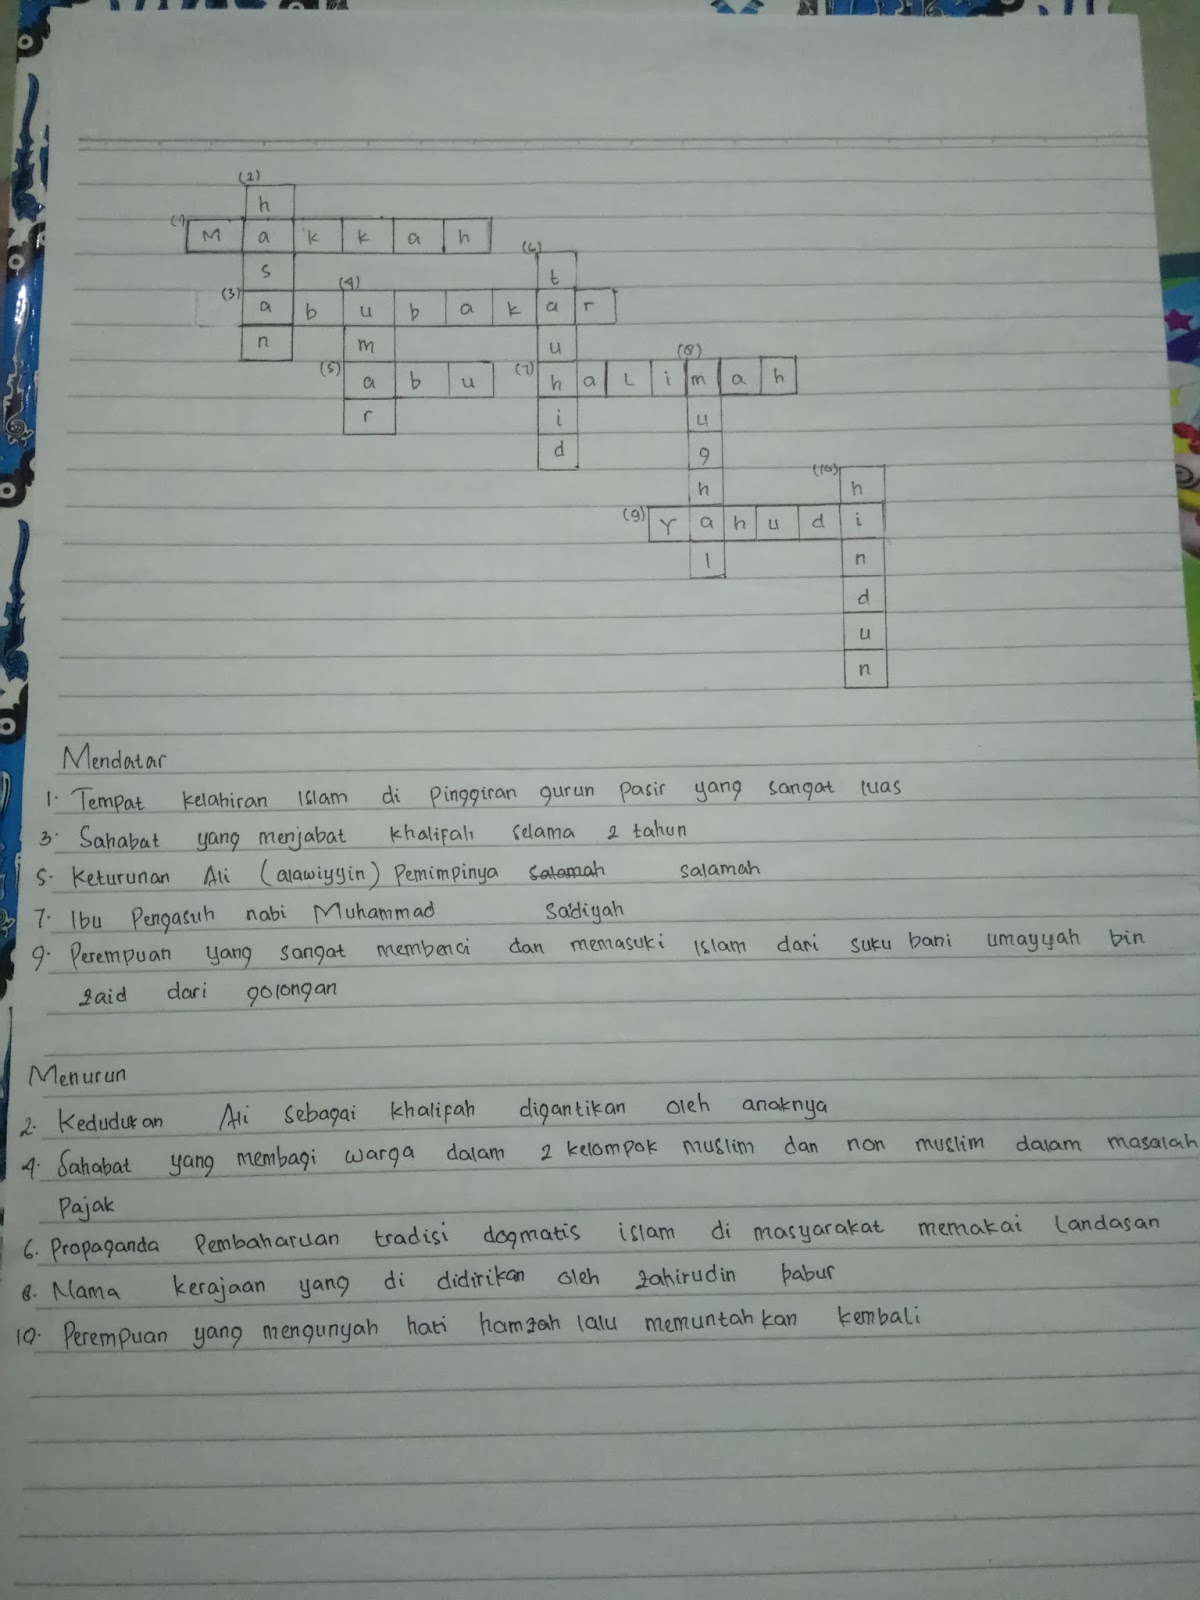 (2)
h
(1) M a k k a h
(6)
s t
(4)
(3) a b u b a k a r
n m u
(8)
(5) a b u (7) h a L i m a h
r i u
d g
(10)
h h
(9) Y a h u d i
l n
d
u
n
Mendatar
1. Tempat kelahiran Islam di pinggiran gurun pasir yang sangat luas
3. Sahabat yang menjabat khalifah selama 2 tahun
5. Keturunan Ali (alawiyyin) Pemimpinya salamah salamah
7. Ibu Pengasuh nabi Muhammad Sa'diyah
9. Perempuan yang sangat membenci dan memasuki Islam dari suku bani umayyah bin
zaid dari golongan
Menurun
2. Kedudukan Ali sebagai khalifah digantikan oleh anaknya
4. Sahabat yang membagi warga dalam 2 kelompok muslim dan non muslim dalam masalah
Pajak
6. Propaganda Pembaharuan tradisi dogmatis islam di masyarakat memakai landasan
8. Nama kerajaan yang di didirikan oleh zahirudin babur
10. Perempuan yang mengunyah hati hamzah lalu memuntahkan kembali